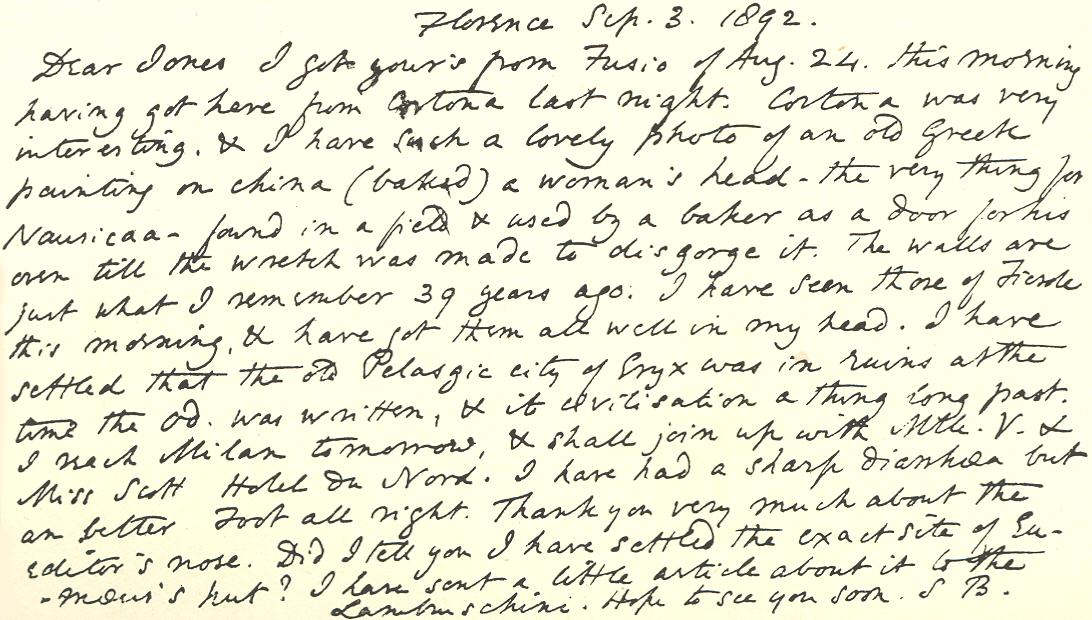 Florence Sep. 3. 1892.
Dear Jones I got your's from Fusio of Aug. 24. this morning
having got here from Cortona last night. Cortona was very
interesting. & I have such a lovely photo of an old Greek
painting on china (baked) a woman's head - the very thing for
Nausicaa - found in a field & used by a baker as a door for his
oven till the wretch was made to disgorge it. The walls are
just what I remember 39 years ago. I have seen those of Fiesole
this morning, & have got them all well in my head. I have
settled that the old Pelasgic city of Eryx was in ruins at the
time the Od. was written, & it civilisation a thing long past.
I reach Milan tomorrow, & shall join up with Mlle. V. &
Miss Scott Hotel du Nord. I have had a sharp diarrhœa but
am better Foot all right. Thank you very much about the
editor's nose. Did I tell you I have settled the exact site of Eu-
-mæus's hut? I have sent a little article about it to the
Lambruschini. Hope to see you soon. S B.